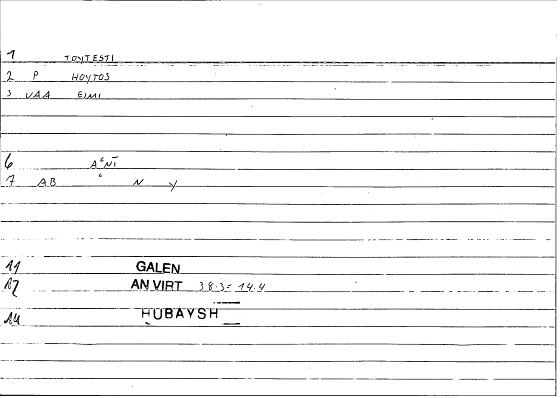 1 TOYTESTI
2 P HOYTOS
3 VAA EIMI
6 A'NI
7 AB N Y
11 GALEN
12 AN VIRT 38.3= 14.4
14 HUBAYSH